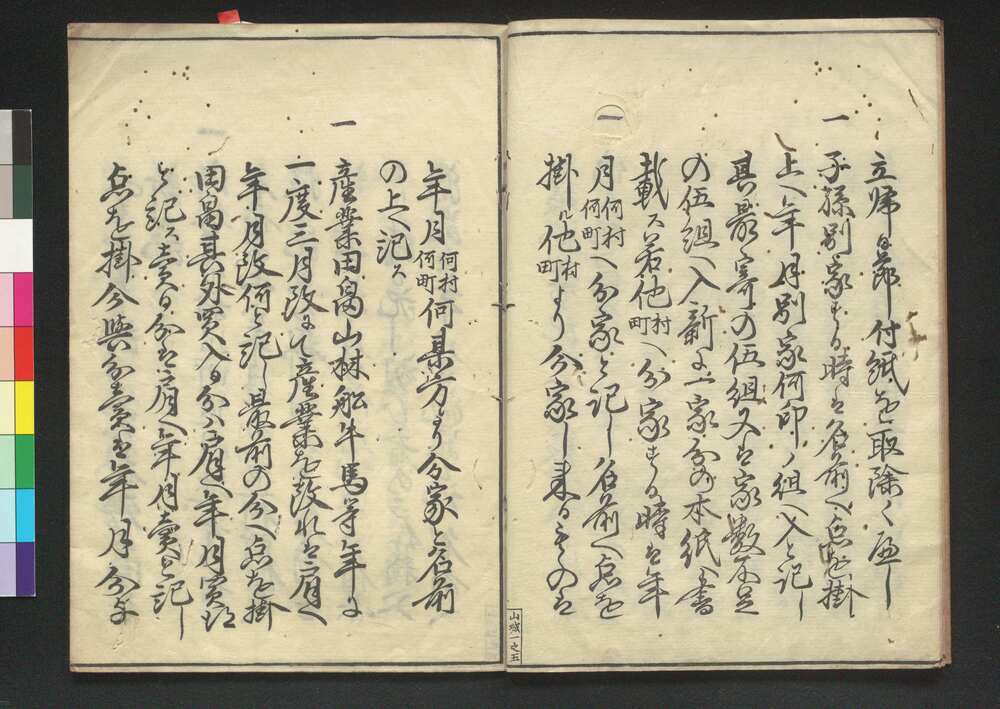 立帰る節付紙を取除く 通し
一 子孫別家する時は名前へ点を掛
上へ年月別家何印ノ組へ入と記し
其最寄の伍組又は家数不足
の伍組へ入新に一家分の本紙へ書
載ス若他村町へ分家する時は年
一 月何村何町へ分家と記し名前へ点を
掛ル他村町より分家し来るものは
年月何村何町何某方より分家と名前
の上へ記ス
一 産業田畠山林船牛馬等年に
一度三月改にて産業を改れは肩へ
年月改何と記し最前の分へ点を掛
田畠其外買入る分ハ肩へ年月買添
と記ス売る分は肩へ年月売ると記し
点を掛分与分売は年月分与
山城一之五